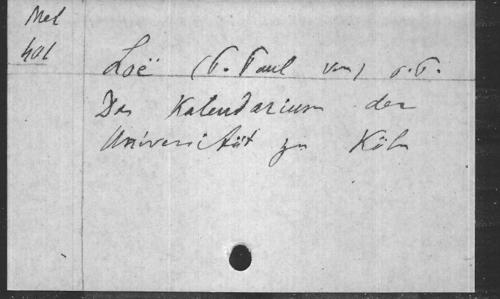 Mel
401
Loë (P. Paul von) o.P.
Das Kalendarium der
Universität zu Köln